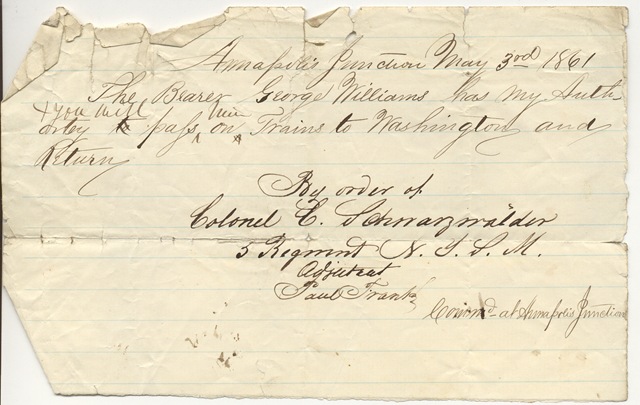 Annapolis Junction May 3rd 1861
The Bearer George Williams has my Auth-
& you will him
ority to pass on Trains to Washington and
Return
By order of
Colonel C. Schwarzwälder
5 Regment N. Y. S. M.
Adjutant
Paul Frank
Comm'd at Annapolis Junction